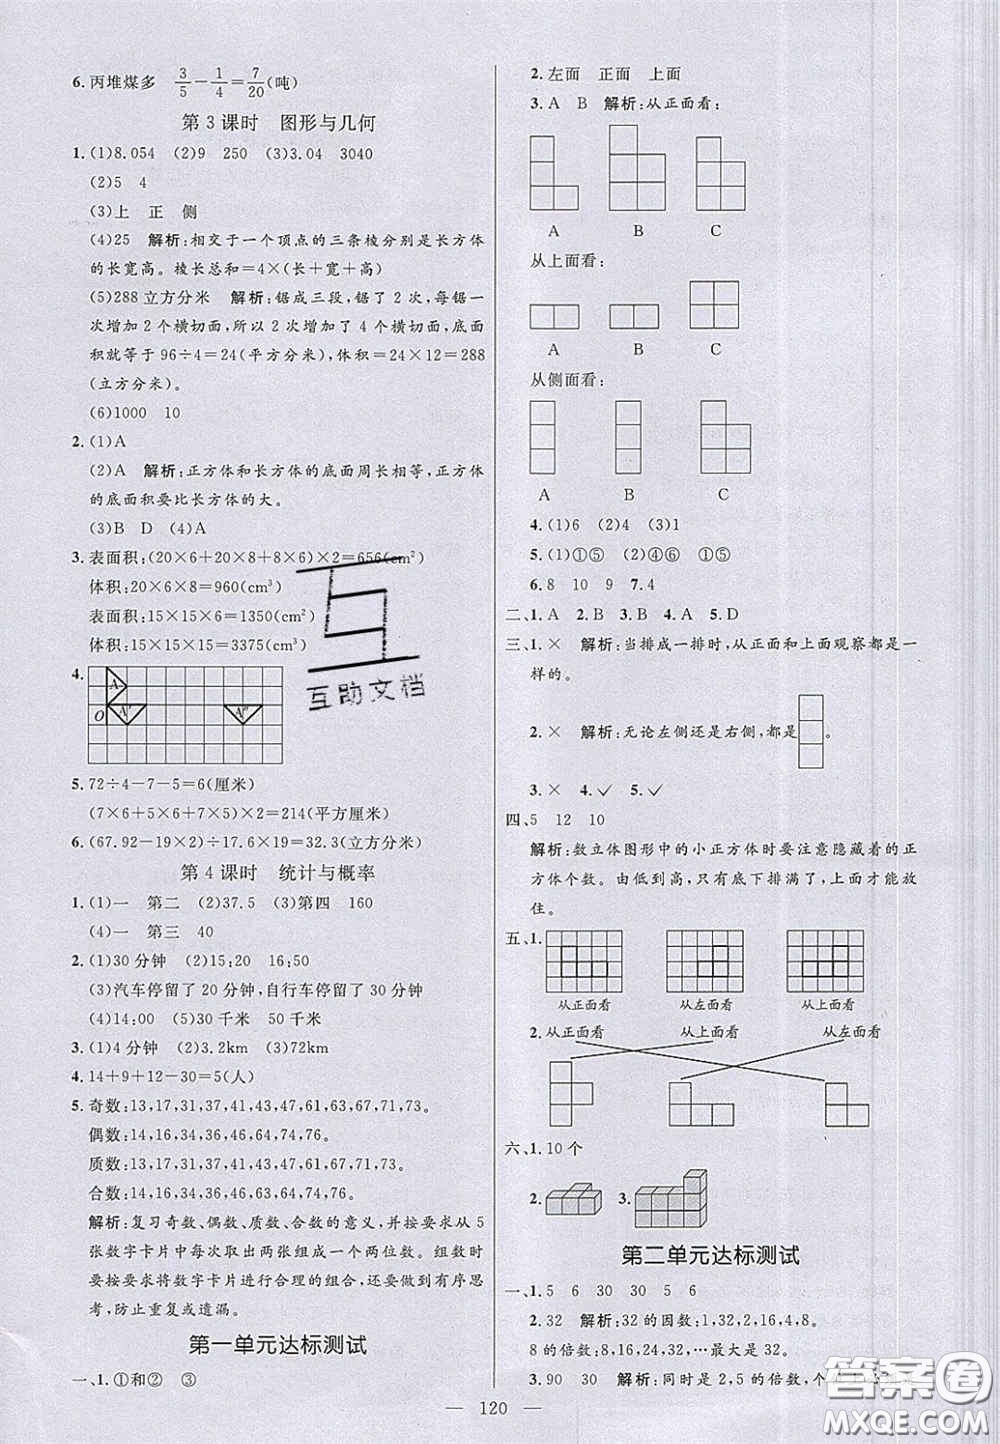 6.丙堆煤多 3/5－1/4＝7/20(吨)
第3课时 图形与几何
1.(1)8.054 (2)9 250 (3)3.04 3040
(2)5 4
(3)上 正 侧
(4)25 解析:相交于一个顶点的三条棱分别是长方体
的长宽高。棱长总和＝4×(长＋宽＋高)
(5)288立方分米 解析:锯成三段,锯了2次,每锯一
次增加2个横切面,所以2次增加了4个横切面,底面
积就等于96÷4＝24(平方分米),体积＝24×12＝288
(立方分米)。
(6)1000 10
2.(1)A
(2)A 解析:正方体和长方体的底面周长相等,正方体
的底面积要比长方体的大。
(3)B D (4)A
3.表面积:(20×6＋20×8＋8×6)×2＝656(cm²)
体积:20×6×8＝960(cm³)
表面积:15×15×6＝1350(cm²)
体积:15×15×15＝3375(cm³)
4.
A
O A′ A″
5.72÷4－7－5＝6(厘米)
(7×6＋5×6＋7×5)×2＝214(平方厘米)
6.(67.92－19×2)÷17.6×19＝32.3(立方分米)
第4课时 统计与概率
1.(1)一 第二 (2)37.5 (3)第四 160
(4)一 第三 40
2.(1)30分钟 (2)15:20 16:50
(3)汽车停留了20分钟,自行车停留了30分钟
(4)14:00 50千米 50千米
3.(1)4分钟 (2)3.2km (3)72km
4.14＋9＋12－30＝5(人)
5.奇数:13,17,31,37,41,43,47,61,63,67,71,73。
偶数:14,16,34,36,46,64,74,76。
质数:13,17,31,37,41,43,47,61,67,71,73。
合数:14,16,34,36,46,63,64,74,76。
解析:复习奇数、偶数、质数、合数的意义,并按要求从5
张数字卡片中每次取出两张组成一个两位数。组数时
要按要求将数字卡片进行合理的组合,还要做到有序思
考,防止重复或遗漏。
第一单元达标测试
一、1.①和② ③
2.左面 正面 上面
3.A B 解析:从正面看:
A B C
从上面看:
A B C
从侧面看:
A B C
4.(1)6 (2)4 (3)1
5.(1)①⑤ (2)④⑥ ①⑤
6.8 10 9 7.4
二、1.A 2.B 3.B 4.A 5.D
三、1.× 解析:当排成一排时,从正面和上面观察都是一
样的。
2.× 解析:无论左侧还是右侧,都是 。
3.× 4.✓ 5.✓
四、5 12 10
解析:数立体图形中的小正方体时要注意隐藏着的正
方体个数。由低到高,只有底下排满了,上面才能放
住。
五、1.
从正面看 从左面看 从上面看
2.从正面看 从上面看 从左面看
六、1.10个
2. 3.
第二单元达标测试
一、1.5 6 30 30 5 6
2.32 解析:32的因数:1,32,2,16,4,8。
8的倍数:8,16,24,32,…最大是32。
3.90 30 解析:同时是2,5的倍数,个
— 120 —
互助文档
答案圈
MXQE.COM